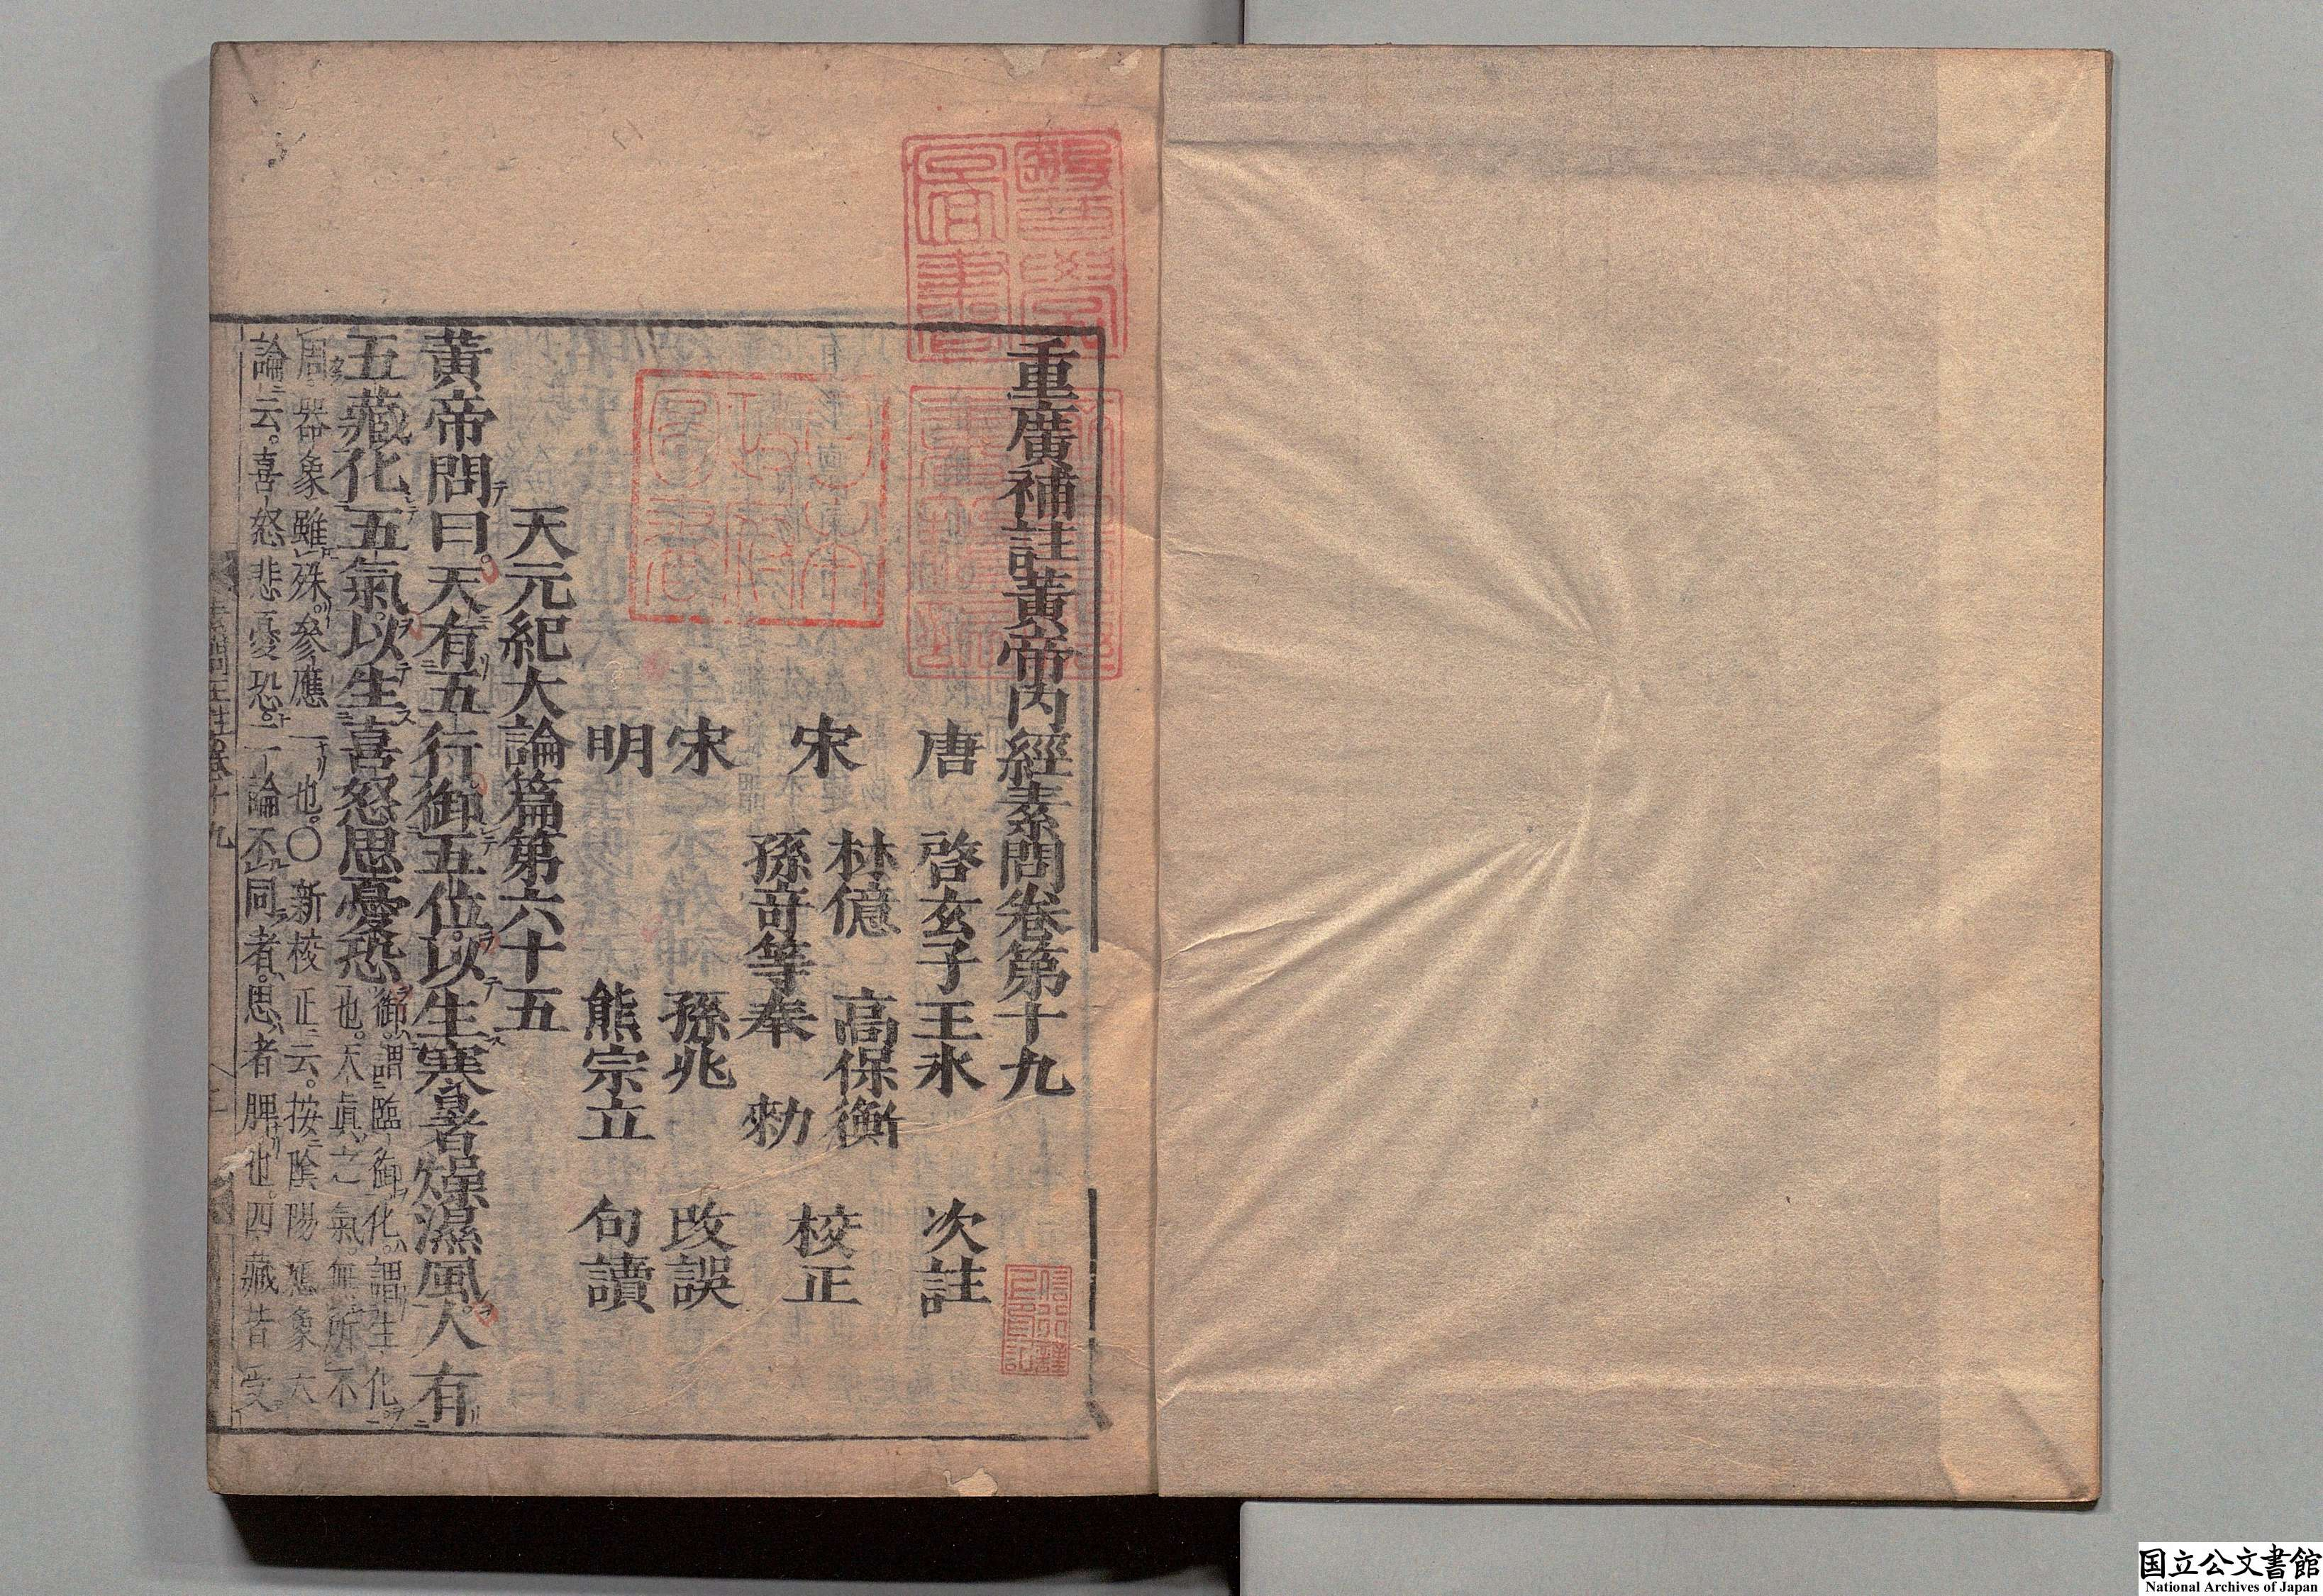 重廣補註黃帝內經素問卷第十九
唐　啓玄子王氷　次註
宋　林億　高保衡
孫竒等奉　勑　校正
宋　孫兆　改誤
明　熊宗立　句讀
天元紀大論篇第六十五
黃帝問曰。天有五行。御五位。以生寒暑燥濕風。人有
五藏。化五氣。以生喜怒思憂恐。
御。謂臨御。化。謂生化
也。天眞之氣。無所不
周。器象雖殊。參應一也。〇新校正云。按陰陽應象大
論云。喜怒悲憂恐。二論不同者。思者脾也。四藏皆受。
国立公文書館
National Archives of Japan